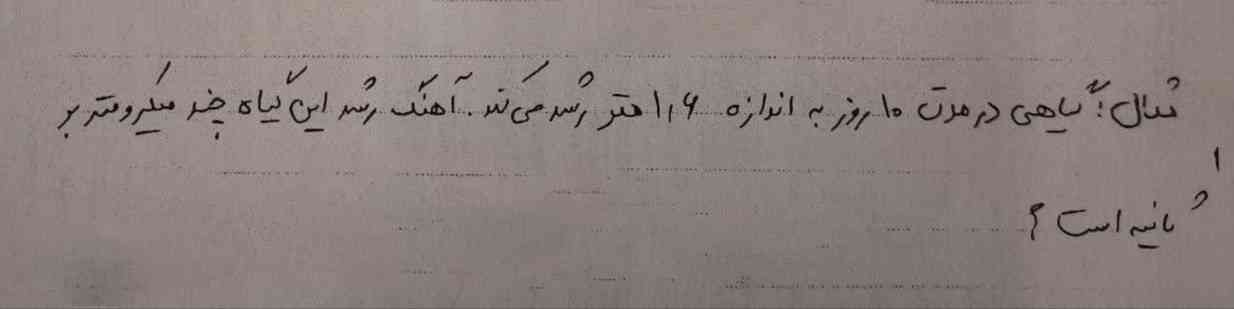 سوال؛ گیاهی در مدت ۱۰ روز به اندازه ۱٫۶ متر رشد می‌کند. آهنگ رشد این گیاه چند میکرومتر بر
ثانیه است؟